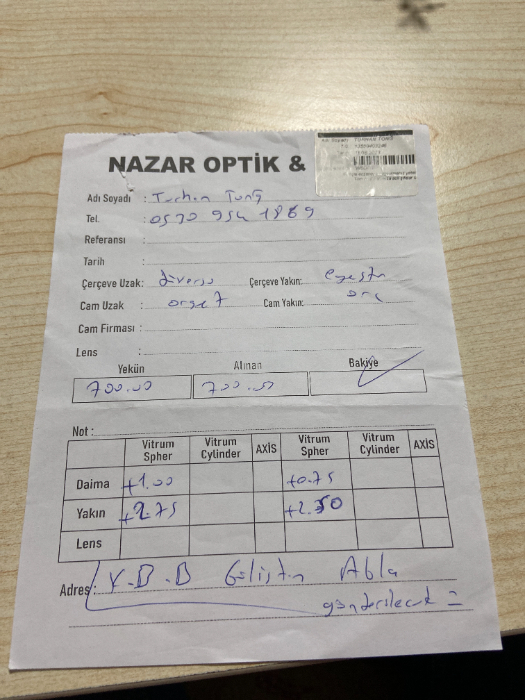 NAZAR OPTİK &
Adı Soyadı : Tunç
Tel. : 0530 954 1869
Referansı :
Tarih :
Çerçeve Uzak: Çerçeve Yakın:
Cam Uzak : Cam Yakın:
Cam Firması :
Lens :
Yekün Alınan Bakiye
700.00 700.00
Not :
Vitrum Spher Vitrum Cylinder AXİS Vitrum Spher Vitrum Cylinder AXİS
Daima +1.00 +0.75
Yakın +2.75 +2.50
Lens
Adres: Y.B.B Gülistan Abla
gönderilecek =